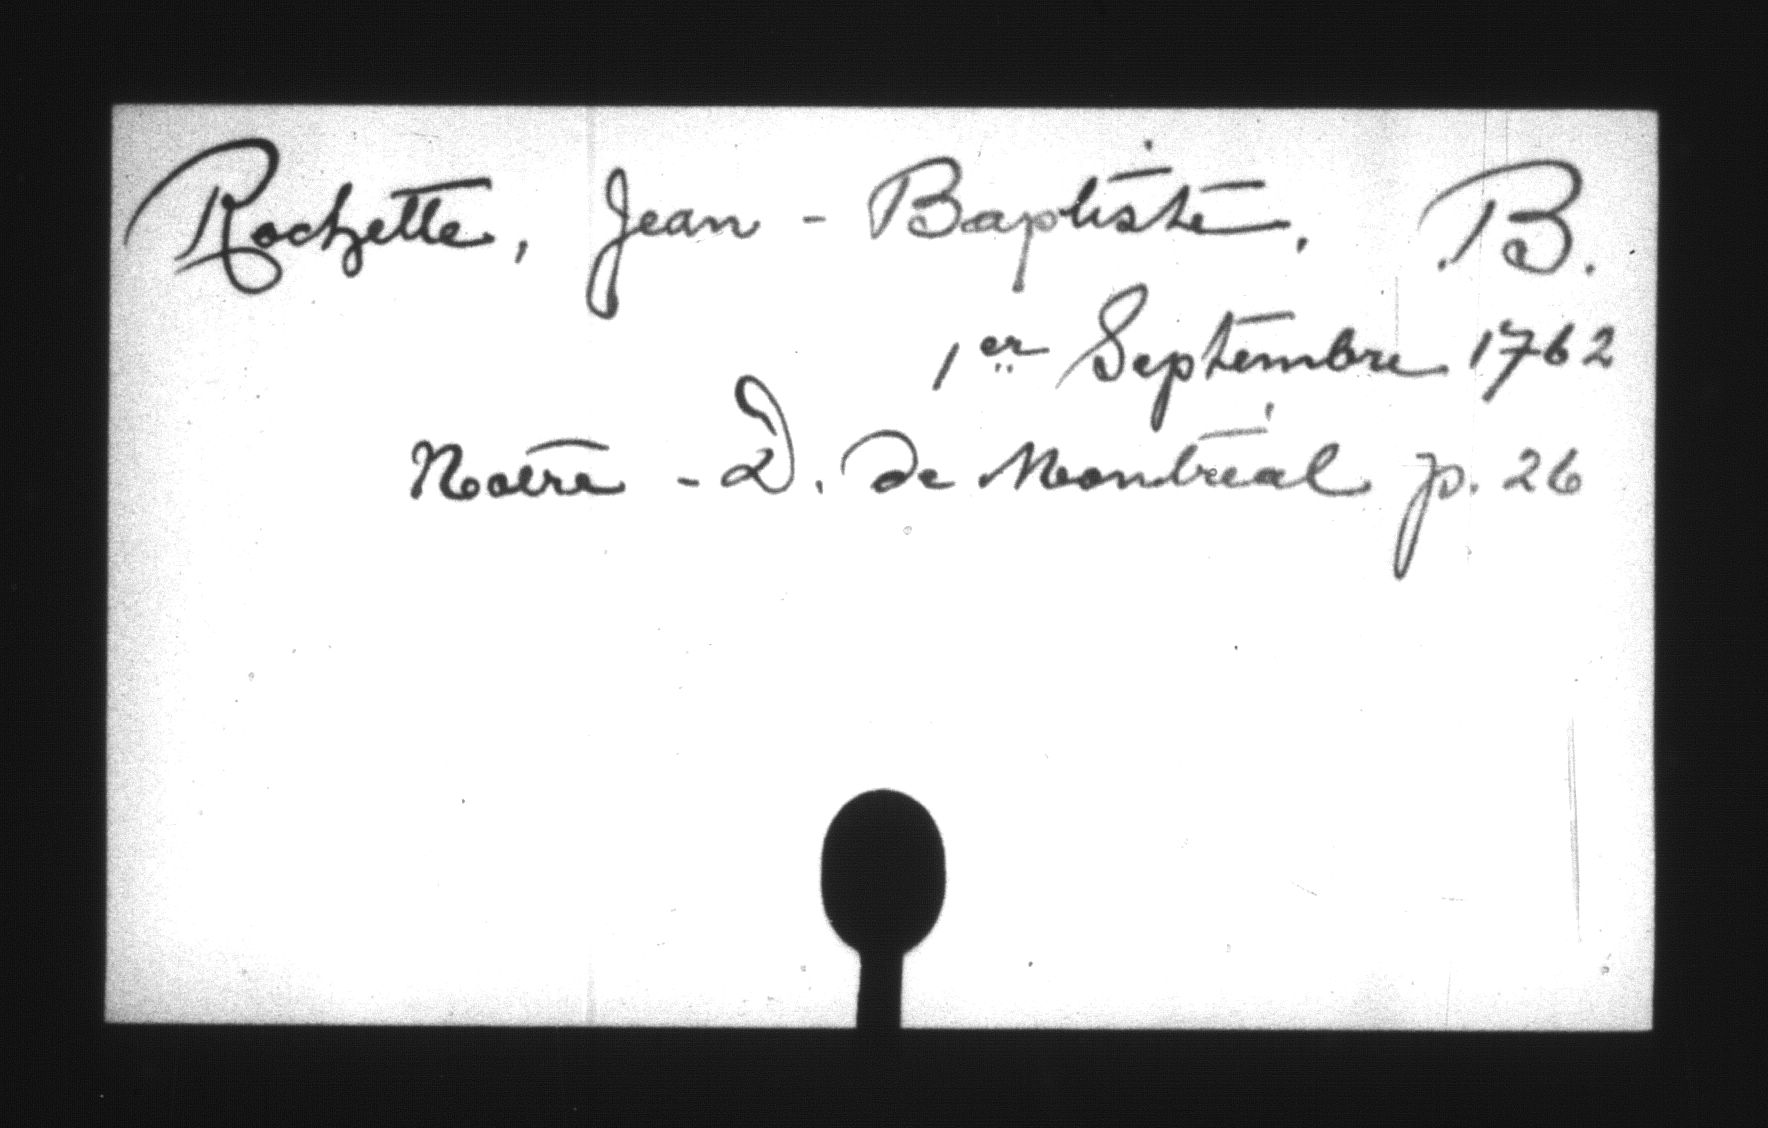 Rochette, Jean - Baptiste, B.
1er Septembre 1762
Notre - D. de Montréal p. 26